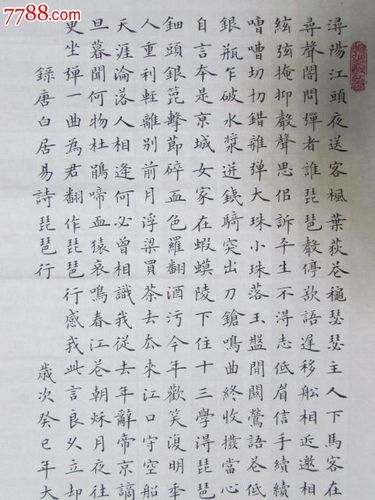 7788.com
潯陽江頭夜送客楓葉荻花穐瑟瑟主人下馬客在
尋聲闇問彈者誰琵琶聲停欲語遲移船相近邀相
絃弦掩抑聲聲思侣訴平生不得志低眉信手續續
嘈嘈切切錯雜彈大珠小珠落玉盤間關鶯語花低
銀瓶乍破水漿迸鐵騎突出刀鎗鳴曲終收撥當心
自言本是京城女家在蝦蟆陵下住十三學得琵琶
鈿頭銀篦擊節碎血色羅翻酒污今年歡笑復明秊
人重利輕離別前月浮梁買茶去去來江口守空船
天涯淪落人相逢何必曾相識我從去年辭帝京謫
旦暮聞何物杜鵑啼血猿哀鳴春江花朝秌月夜往
更坐彈一曲為君翻作琵琶行感我此言良久立却
錄唐白居易詩琵琶行 歲次癸巳年大